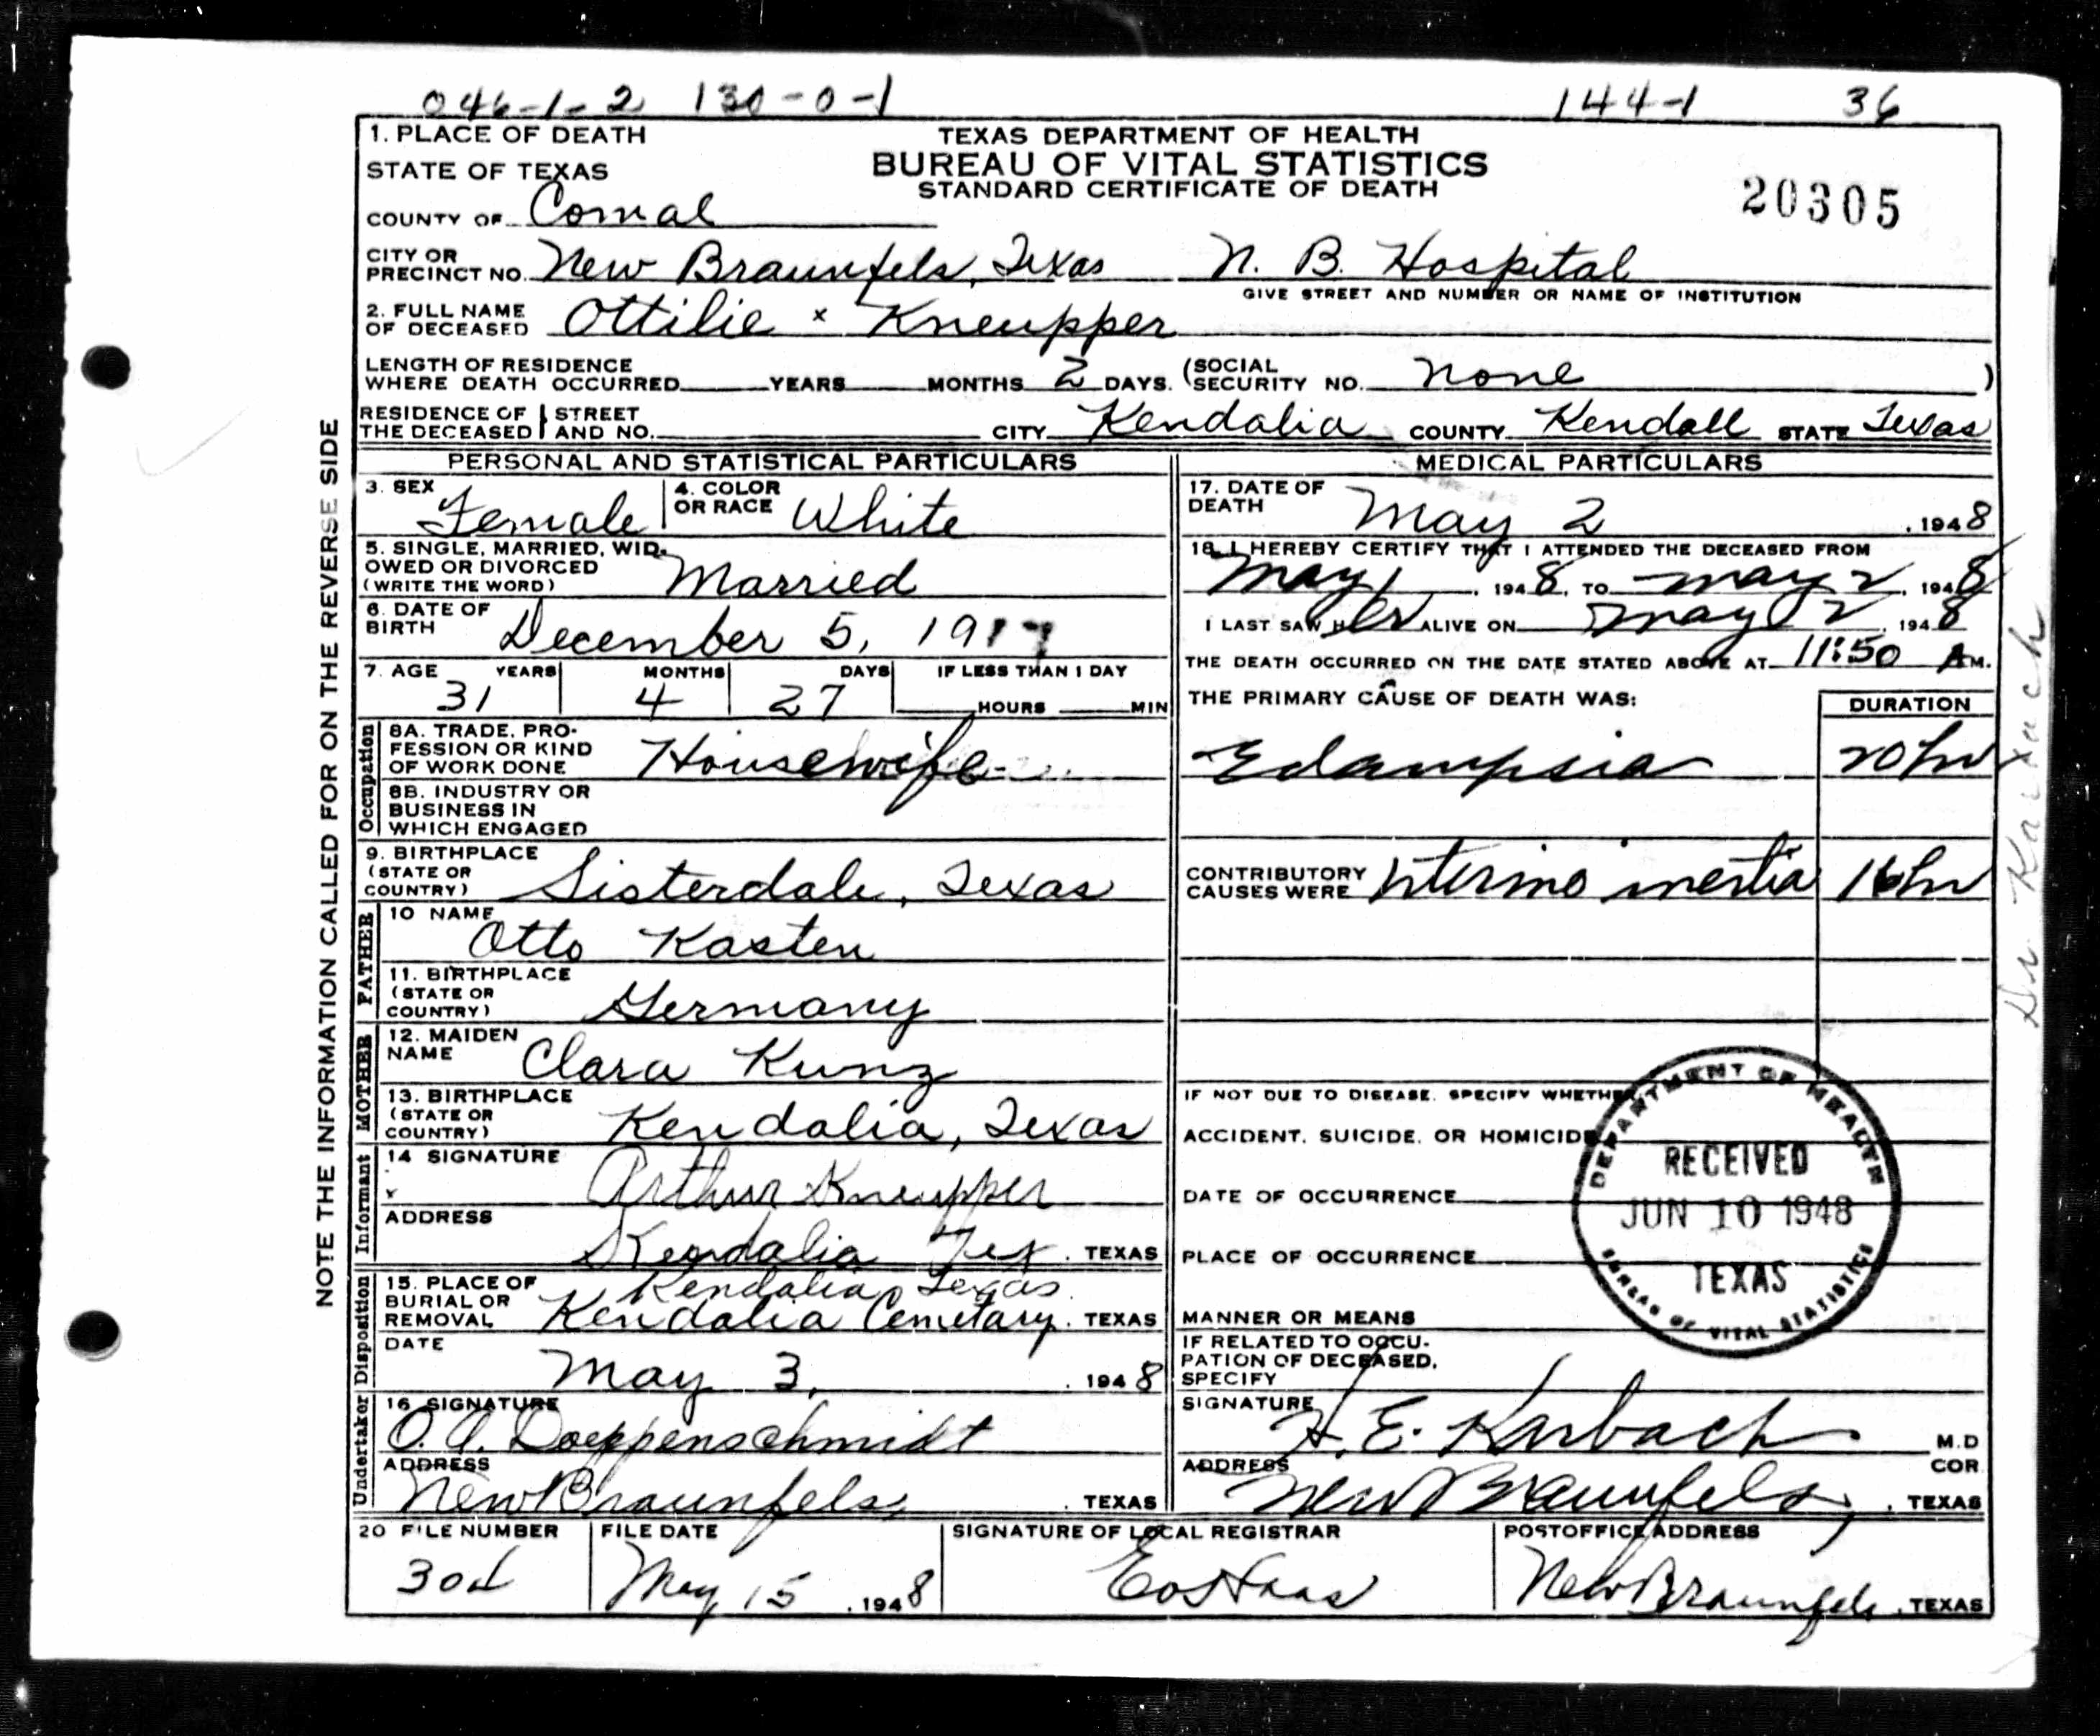 046-1-2 130-0-1 144-1 36
1. PLACE OF DEATH
STATE OF TEXAS
COUNTY OF Comal
TEXAS DEPARTMENT OF HEALTH
BUREAU OF VITAL STATISTICS
STANDARD CERTIFICATE OF DEATH
20305
CITY OR PRECINCT NO. New Braunfels, Texas N. B. Hospital
GIVE STREET AND NUMBER OR NAME OF INSTITUTION
2. FULL NAME OF DECEASED Ottilie x Kneupper
LENGTH OF RESIDENCE
WHERE DEATH OCCURRED YEARS MONTHS 2 DAYS. (SOCIAL SECURITY NO. None )
RESIDENCE OF THE DECEASED STREET AND NO. CITY Kendalia COUNTY Kendall STATE Texas
PERSONAL AND STATISTICAL PARTICULARS
3. SEX Female 4. COLOR OR RACE White
5. SINGLE, MARRIED, WIDOWED OR DIVORCED (WRITE THE WORD) Married
6. DATE OF BIRTH December 5, 191
7. AGE YEARS MONTHS DAYS IF LESS THAN 1 DAY
31 4 27 HOURS MIN
Occupation
8A. TRADE, PROFESSION OR KIND OF WORK DONE Housewife
8B. INDUSTRY OR BUSINESS IN WHICH ENGAGED
9. BIRTHPLACE (STATE OR COUNTRY) Sisterdale, Texas
FATHER
10 NAME Otto Kasten
11. BIRTHPLACE (STATE OR COUNTRY) Germany
MOTHER
12. MAIDEN NAME Clara Kunz
13. BIRTHPLACE (STATE OR COUNTRY) Kendalia, Texas
Informant
14 SIGNATURE Arthur Kneupper
ADDRESS Kendalia Tex. TEXAS
Disposition
15. PLACE OF BURIAL OR REMOVAL Kendalia, Texas
Kendalia Cemetary. TEXAS
DATE May 3, 1948
Undertaker
16 SIGNATURE O. A. Doeppenschmidt
ADDRESS New Braunfels, TEXAS
MEDICAL PARTICULARS
17. DATE OF DEATH May 2, 1948
18. I HEREBY CERTIFY THAT I ATTENDED THE DECEASED FROM
May 1, 1948, TO May 2, 1948
I LAST SAW Her ALIVE ON May 2, 1948
THE DEATH OCCURRED ON THE DATE STATED ABOVE AT 11:50 A M.
THE PRIMARY CAUSE OF DEATH WAS: DURATION
Eclampsia 20 hr
CONTRIBUTORY CAUSES WERE inertia 16 hr
IF NOT DUE TO DISEASE, SPECIFY WHETHER
ACCIDENT, SUICIDE, OR HOMICIDE
DATE OF OCCURRENCE
PLACE OF OCCURRENCE
MANNER OR MEANS
IF RELATED TO OCCUPATION OF DECEASED, SPECIFY
DEPARTMENT OF HEALTH
RECEIVED
JUN 10 1948
TEXAS
BUREAU OF VITAL STATISTICS
SIGNATURE H. E. Karbach M.D
COR
ADDRESS New Braunfels, TEXAS
20 FILE NUMBER FILE DATE SIGNATURE OF LOCAL REGISTRAR POSTOFFICE ADDRESS
May 15, 1948 New Braunfels, TEXAS
NOTE THE INFORMATION CALLED FOR ON THE REVERSE SIDE
Dr. Karbach